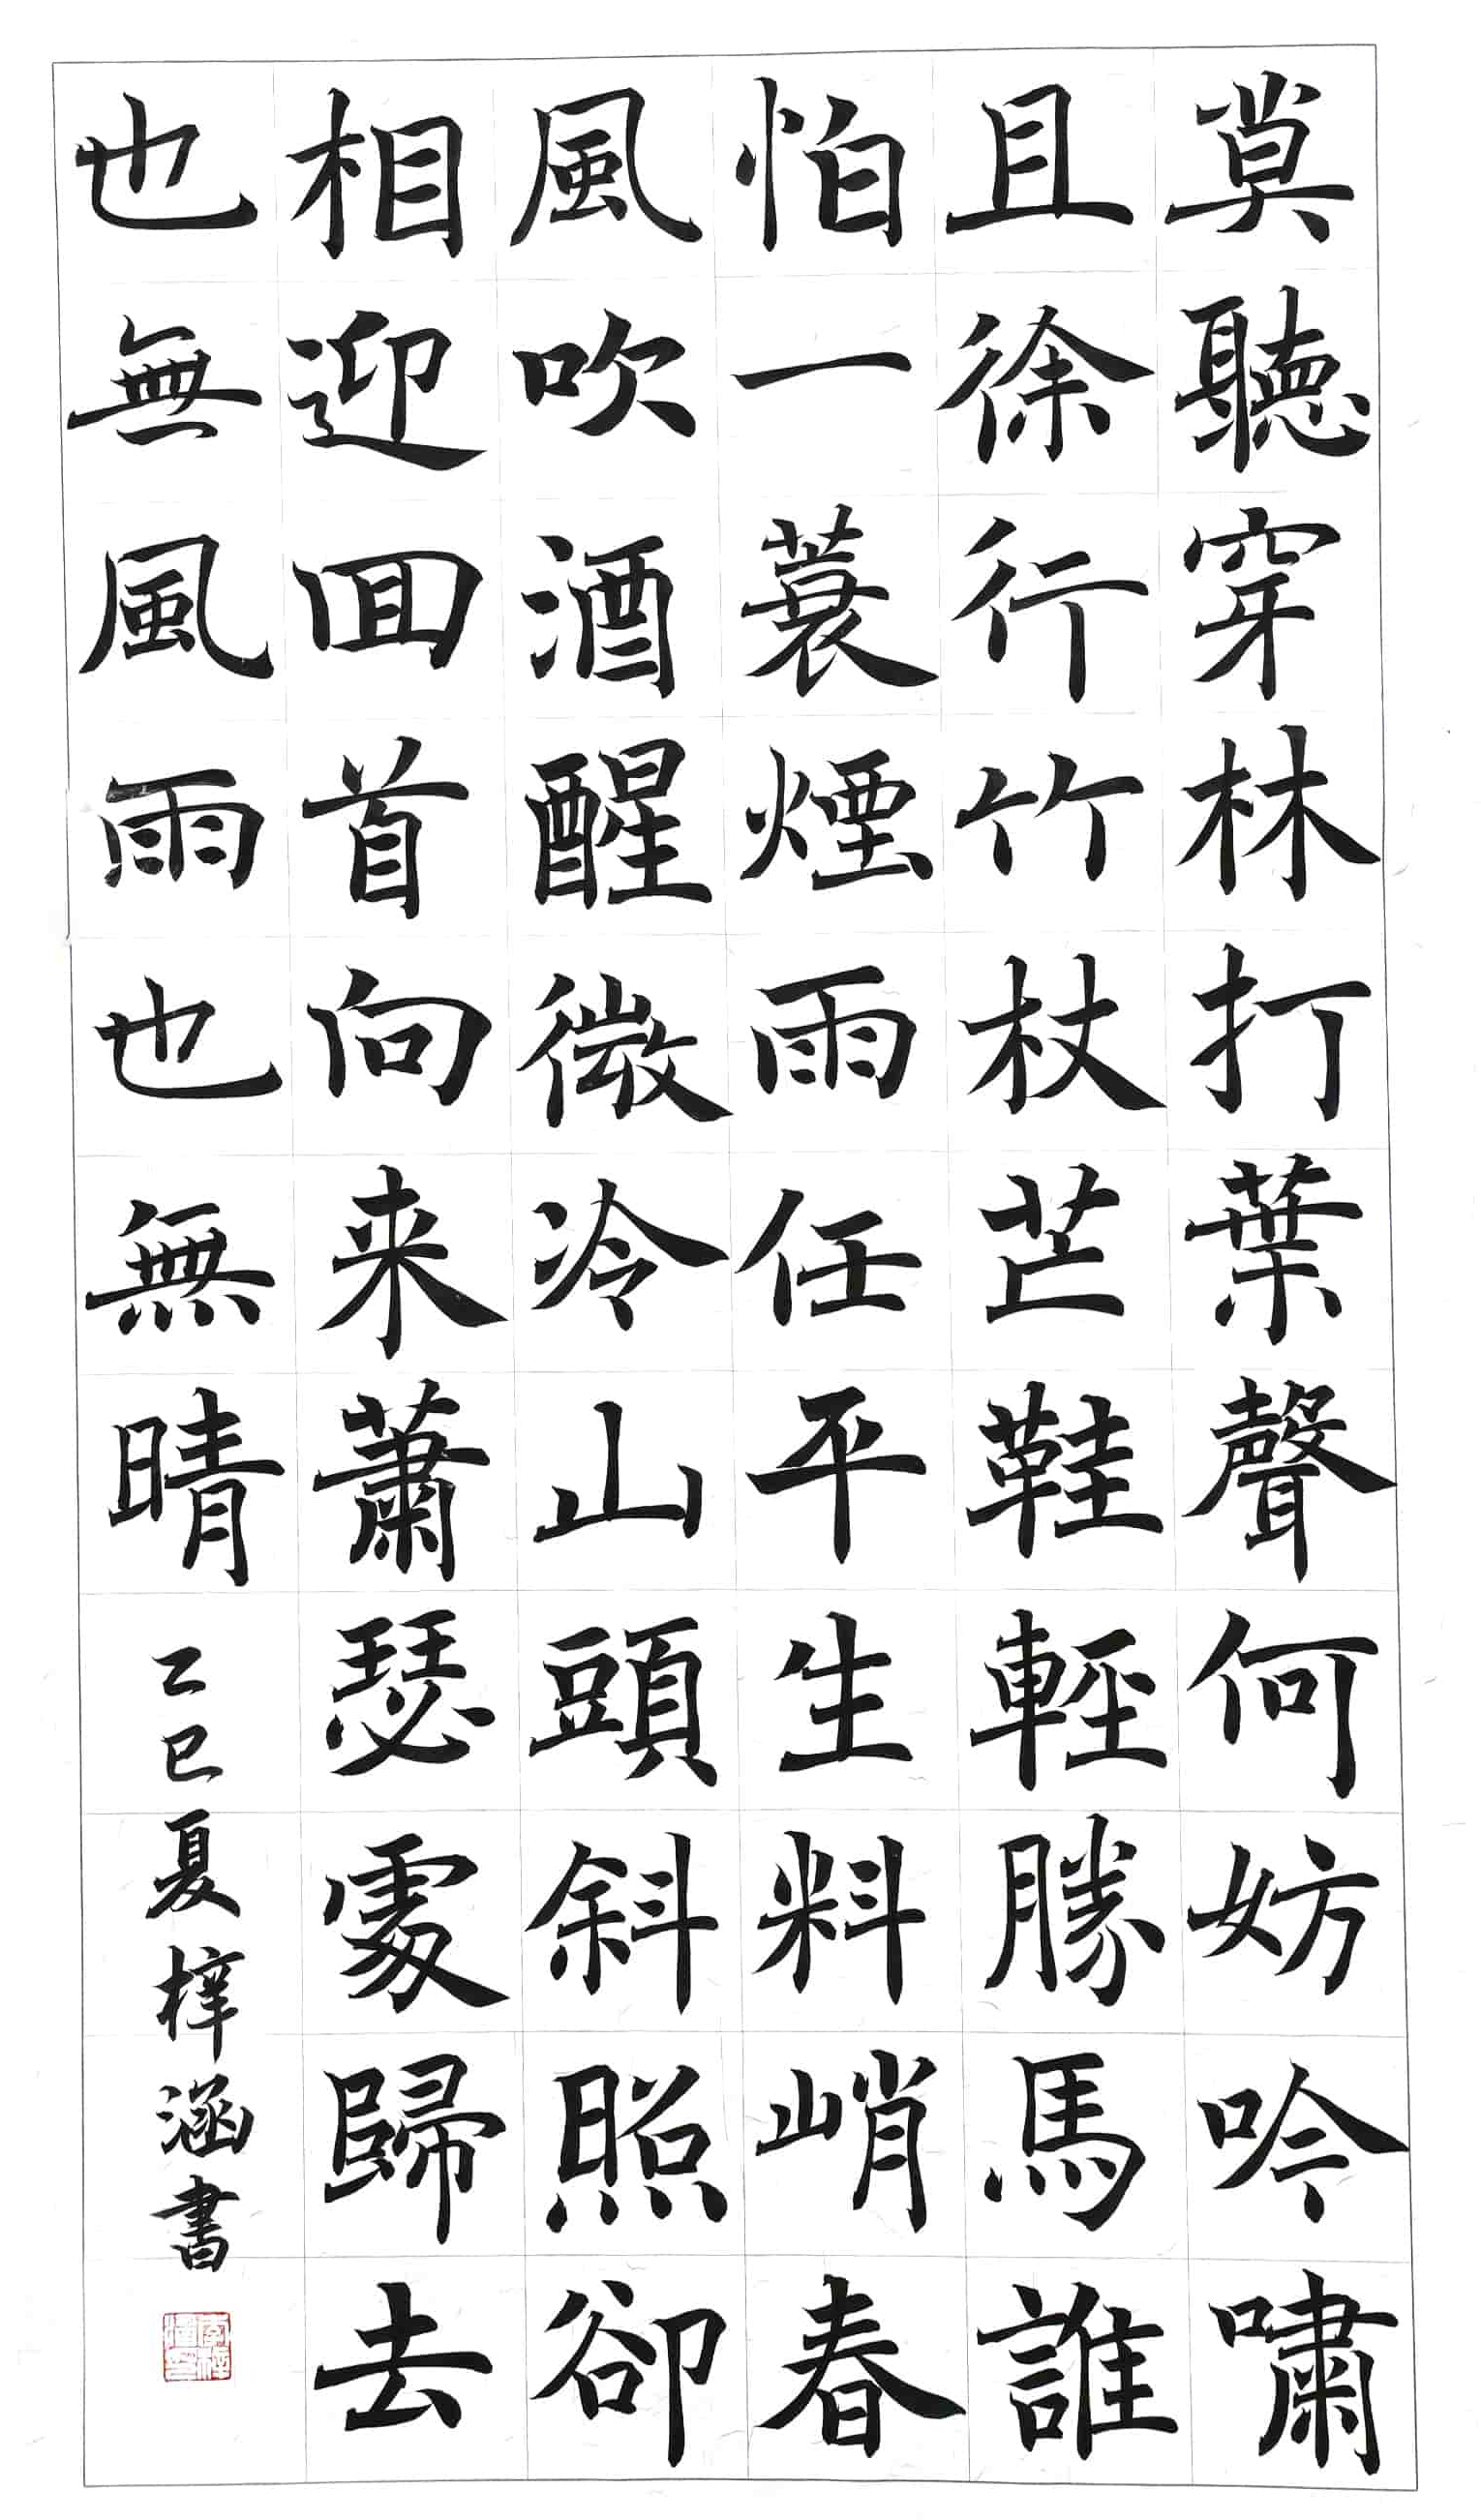 莫聽穿林打葉聲何妨吟嘯
且徐行竹杖芒鞋輕勝馬誰
怕一蓑煙雨任平生料峭春
風吹酒醒微冷山頭斜照卻
相迎回首向来蕭瑟處歸去
也無風雨也無晴
乙巳夏梓涵書